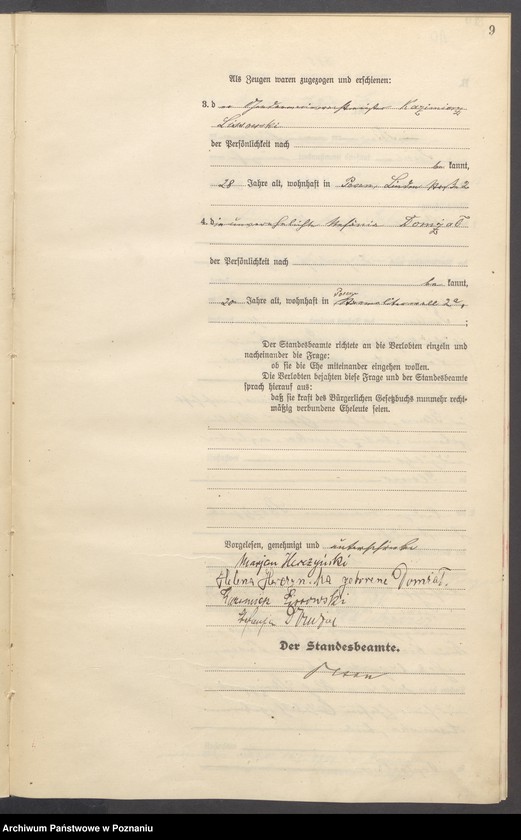 9
Als Zeugen waren zugezogen und erschienen:
3. der Kazimierz
der Persönlichkeit nach
be kannt,
28 Jahre alt, wohnhaft in Posen, Linden Straße 2
4. die unverehelichte Stefania Domżał
der Persönlichkeit nach
be kannt,
20 Jahre alt, wohnhaft in Posen 2a,
;
Der Standesbeamte richtete an die Verlobten einzeln und
nacheinander die Frage:
ob sie die Ehe miteinander eingehen wollen.
Die Verlobten bejahten diese Frage und der Standesbeamte
sprach hierauf aus:
daß sie kraft des Bürgerlichen Gesetzbuchs nunmehr recht-
mäßig verbundene Eheleute seien.
Vorgelesen, genehmigt und unterschrieben
Marjan Herczyński
Helena geborene Domżał.
Der Standesbeamte.
Archiwum Państwowe w Poznaniu